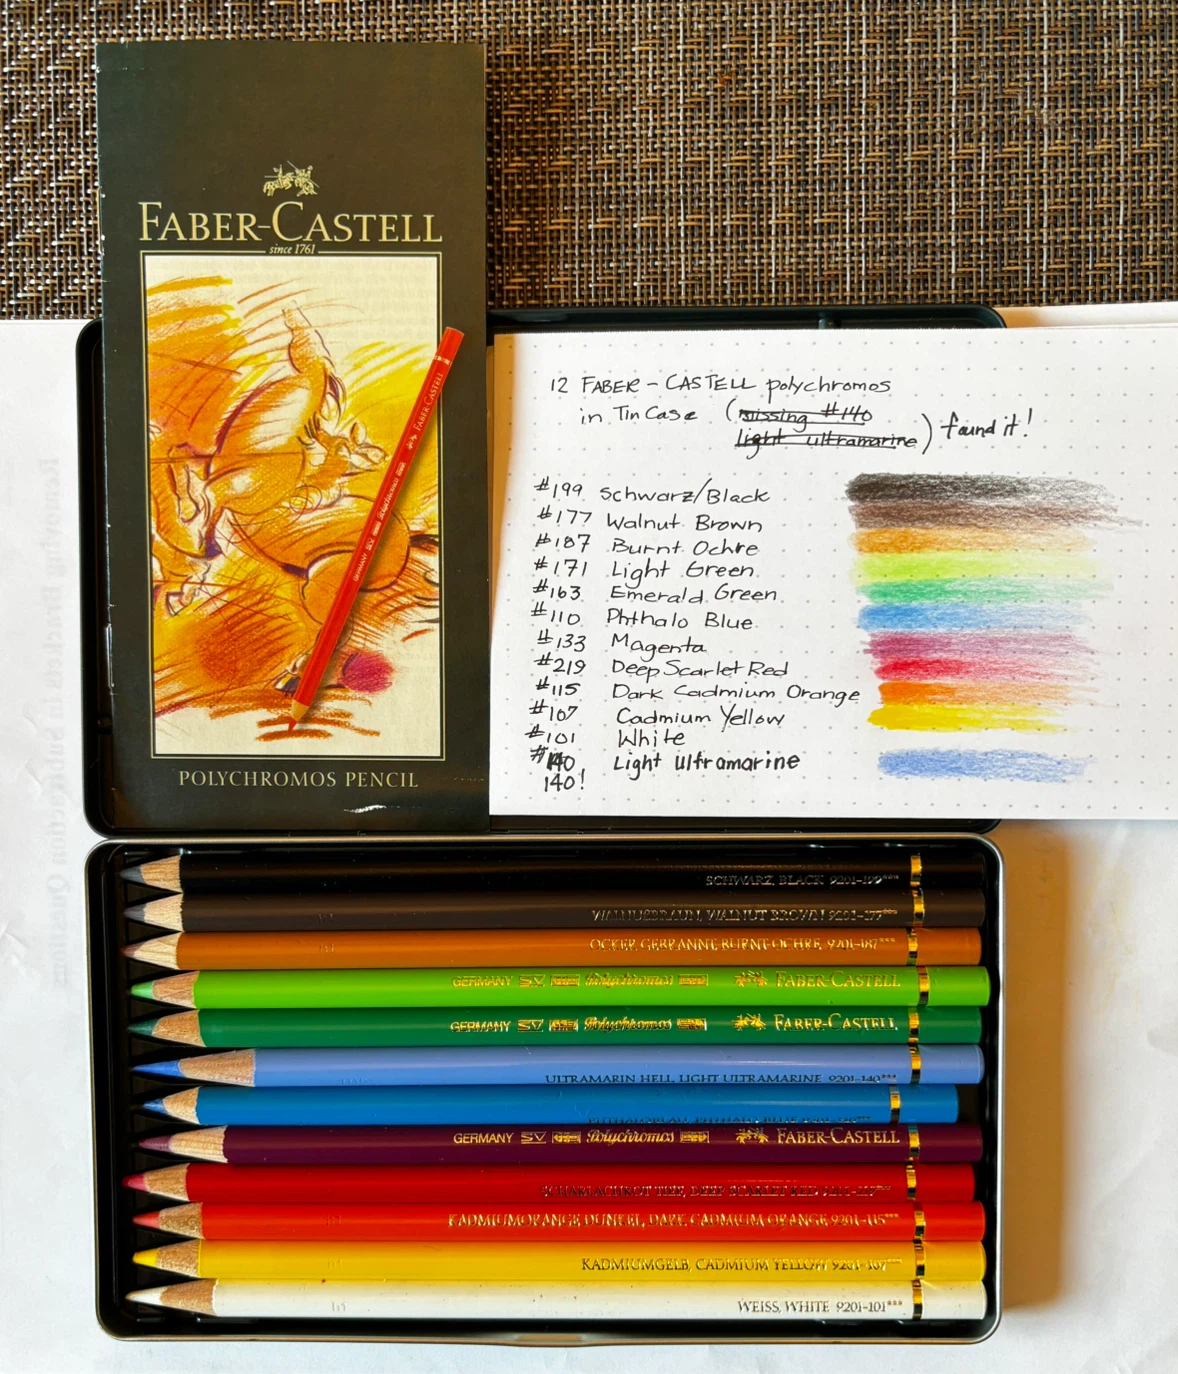 FABER-CASTELL
since 1761
FABER-CASTELL
Polychromos
GERMANY
POLYCHROMOS PENCIL
12 FABER-CASTELL polychromos
in Tin Case (missing #140
light ultramarine) found it!
#199 Schwarz/Black
#177 Walnut Brown
#187 Burnt Ochre
#171 Light Green
#163 Emerald Green
#110 Phthalo Blue
#133 Magenta
#219 Deep Scarlet Red
#115 Dark Cadmium Orange
#107 Cadmium Yellow
#101 White
#140 Light ultramarine
140!
SCHWARZ, BLACK 9201-199***
WALNUSSBRAUN, WALNUT BROWN 9201-177***
OCKER GEBRANNT, BURNT OCHRE 9201-187***
GERMANY SV Polychromos FABER-CASTELL
GERMANY SV Polychromos FABER-CASTELL
ULTRAMARIN HELL, LIGHT ULTRAMARINE 9201-140***
GERMANY SV Polychromos FABER-CASTELL
SCHARLACHROT TIEF, DEEP SCARLET RED
KADMIUMORANGE DUNKEL, DARK CADMIUM ORANGE 9201-115***
KADMIUMGELB, CADMIUM YELLOW 9201-107***
WEISS, WHITE 9201-101***